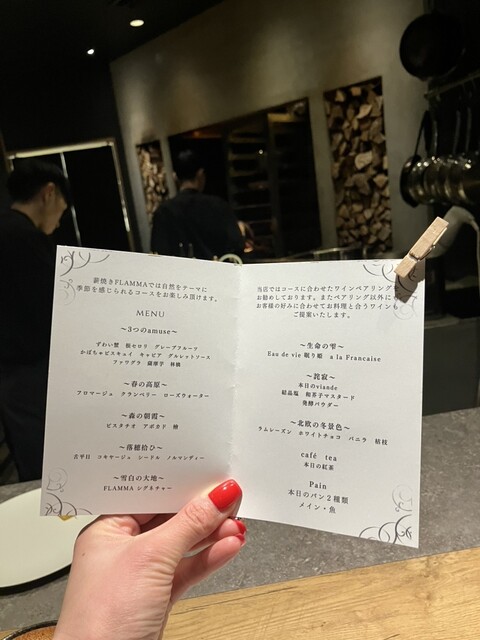 薪焼きFLAMMAでは自然をテーマに
季節を感じられるコースをお楽しみ頂けます。
MENU
〜3つのamuse〜
ずわい蟹 根セロリ グレープフルーツ
かぼちゃビスキュイ キャビア グルレットソース
ファワグラ 薩摩芋 林檎
〜春の高原〜
フロマージュ クランベリー ローズウォーター
〜森の朝霞〜
ピスタチオ アボカド 柚
〜落穂拾ひ〜
舌平目 コキヤージュ シードル ノルマンディー
〜雪白の大地〜
FLAMMA シグネチャー
当店ではコースに合わせたワインペアリングを
お勧めしております。またペアリング以外にも
お客様の好みに合わせてお料理と合うワインを
ご提案いたします。
〜生命の雫〜
Eau de vie 眠り姫 a la Francaise
〜詫寂〜
本日のviande
結晶塩 和芥子マスタード
発酵パウダー
〜北欧の冬景色〜
ラムレーズン ホワイトチョコ バニラ 桔枝
café tea
本日の紅茶
Pain
本日のパン2種類
メイン・魚